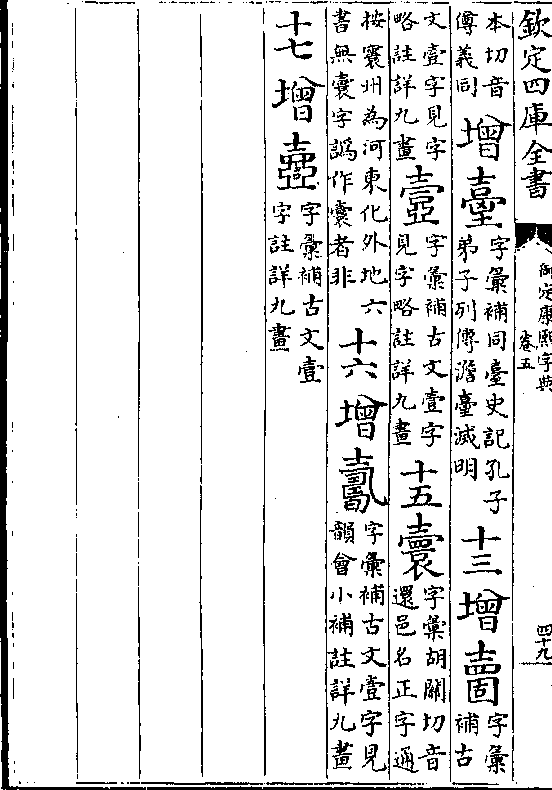 欽定四庫全書
御定康熙字典
卷五
四十九
本切音
傅義同
增
臺
字彙補同臺史記孔子
弟子列傳澹臺滅明
十三
增
字彙
補古
文壹字見字
略註詳九畫
字彙補古文壹字
見字略註詳九畫
十五
字彙胡關切音
還邑名正字通
按寰州為河東化外地六
書無囊字譌作囊者非
十六
增
字彙補古文壹字見
韻會小補註詳九畫
十七
增
字彙補古文壹
字註詳九畫